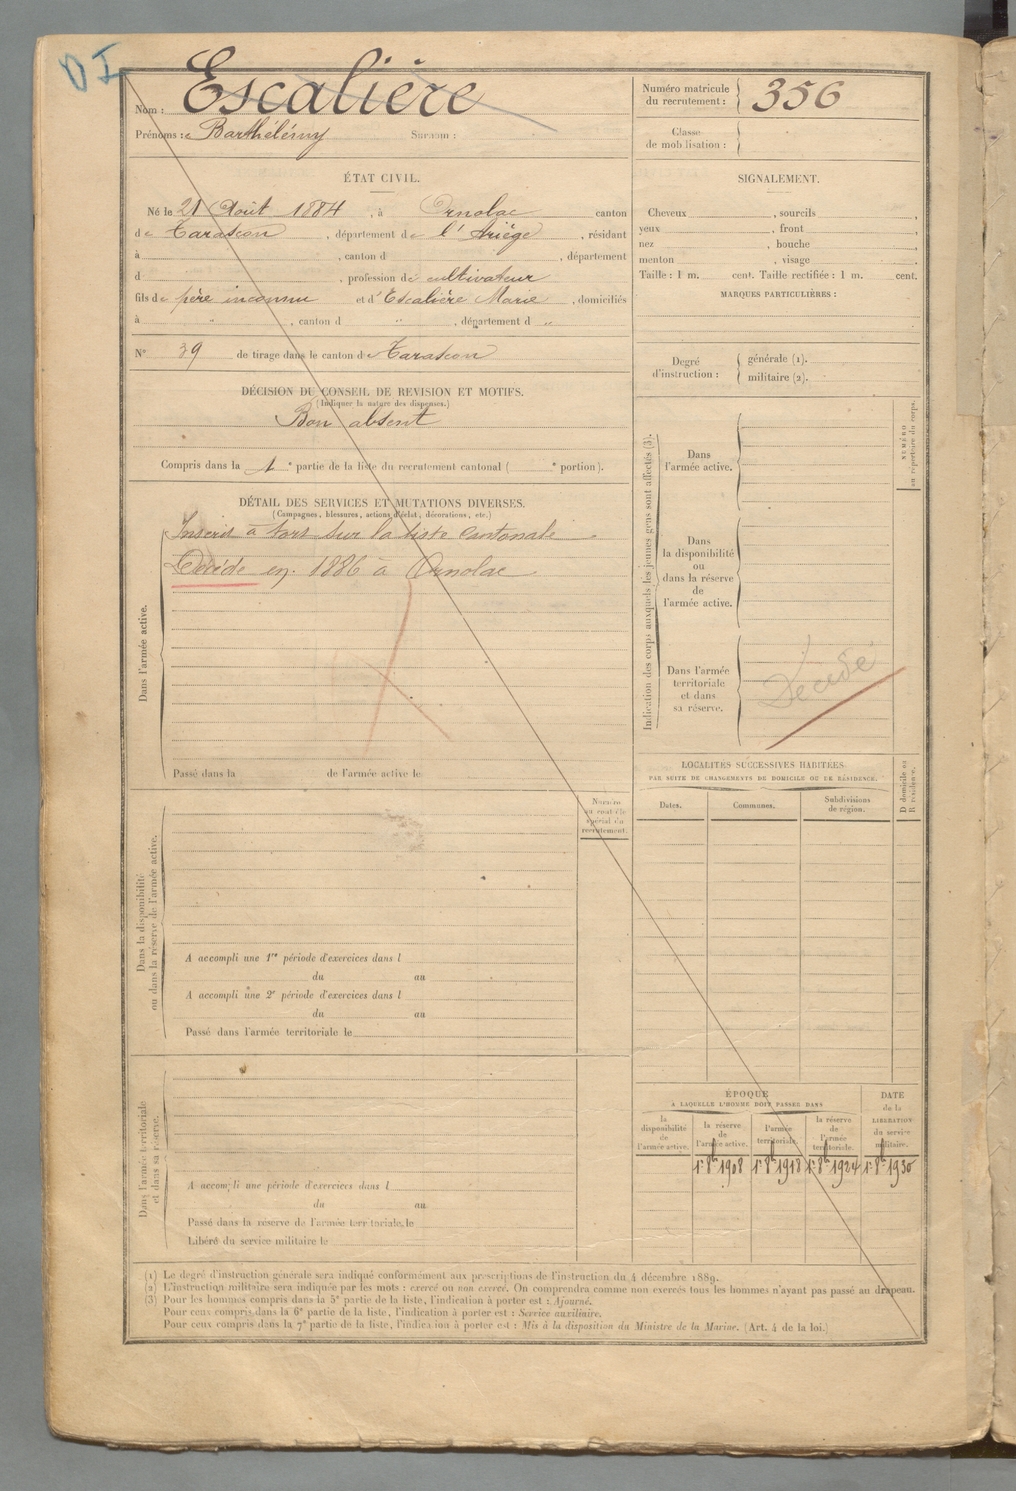 D I
Nom : Escalière
Prénoms : Barthélémy Surnom :
Numéro matricule
du recrutement : 356
Classe
de mobilisation :
ÉTAT CIVIL.
Né le 21 Août 1884, à Ornolac canton
de Tarascon, département de l'Ariège, résidant
à , canton d , département
d , profession de cultivateur
fils de père inconnu et d'Escalière Marie, domiciliés
à " , canton d " , département d "
N° 39 de tirage dans le canton de Tarascon
DÉCISION DU CONSEIL DE REVISION ET MOTIFS.
(Indiquer la nature des dispenses.)
Bon absent
Compris dans la 1e partie de la liste du recrutement cantonal ( e portion).
SIGNALEMENT.
Cheveux , sourcils ,
yeux , front ,
nez , bouche ,
menton , visage ,
Taille : 1 m. cent. Taille rectifiée : 1 m. cent.
MARQUES PARTICULIÈRES :
Degré
d'instruction :
générale (1).
militaire (2).
DÉTAIL DES SERVICES ET MUTATIONS DIVERSES.
(Campagnes, blessures, actions d'éclat, décorations, etc.)
Dans l'armée active.
Inscrit à tors sur la liste cantonale
Décédé en 1886 à Ornolac
Passé dans la de l'armée active le
Indication des corps auxquels les jeunes gens sont affectés (3).
NUMÉRO
au répertoire du corps.
Dans
l'armée active.
Dans
la disponibilité
ou
dans la réserve
de
l'armée active.
Dans l'armée
territoriale
et dans
sa réserve.
Décédé
LOCALITÉS SUCCESSIVES HABITÉES
PAR SUITE DE CHANGEMENTS DE DOMICILE OU DE RÉSIDENCE.
Dates.
Communes.
Subdivisions
de région.
D domicile ou
R résidence.
Dans la disponibilité
ou dans la réserve de l'armée active.
Numéro
au contrôle
spécial du
recrutement.
A accompli une 1re période d'exercices dans l
du au
A accompli une 2e période d'exercices dans l
du au
Passé dans l'armée territoriale le
Dans l'armée territoriale
et dans sa réserve.
A accompli une période d'exercices dans l
du au
Passé dans la réserve de l'armée territoriale, le
Libéré du service militaire le
ÉPOQUE
À LAQUELLE L'HOMME DOIT PASSER DANS
la
disponibilité
de
l'armée active.
la réserve
de
l'armée active.
l'armée
territoriale.
la réserve
de
l'armée
territoriale.
DATE
de la
LIBÉRATION
du service
militaire.
1er 8bre 1908 1er 8bre 1918 1er 8bre 1924 1er 8bre 1930
(1) Le degré d'instruction générale sera indiqué conformément aux prescriptions de l'instruction du 4 décembre 1889.
(2) L'instruction militaire sera indiquée par les mots : exercé ou non exercé. On comprendra comme non exercés tous les hommes n'ayant pas passé au drapeau.
(3) Pour les hommes compris dans la 5e partie de la liste, l'indication à porter est : Ajourné.
Pour ceux compris dans la 6e partie de la liste, l'indication à porter est : Service auxiliaire.
Pour ceux compris dans la 7e partie de la liste, l'indication à porter est : Mis à la disposition du Ministre de la Marine. (Art. 4 de la loi.)